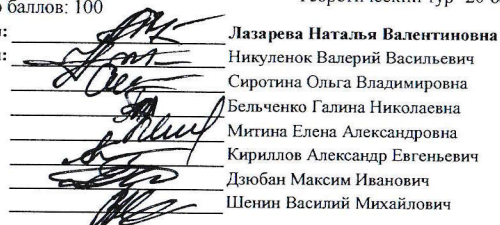 баллов: 100
Лазарева Наталья Валентиновна
Никуленок Валерий Васильевич
Сиротина Ольга Владимировна
Бельченко Галина Николаевна
Митина Елена Александровна
Кириллов Александр Евгеньевич
Дзюбан Максим Иванович
Шенин Василий Михайлович